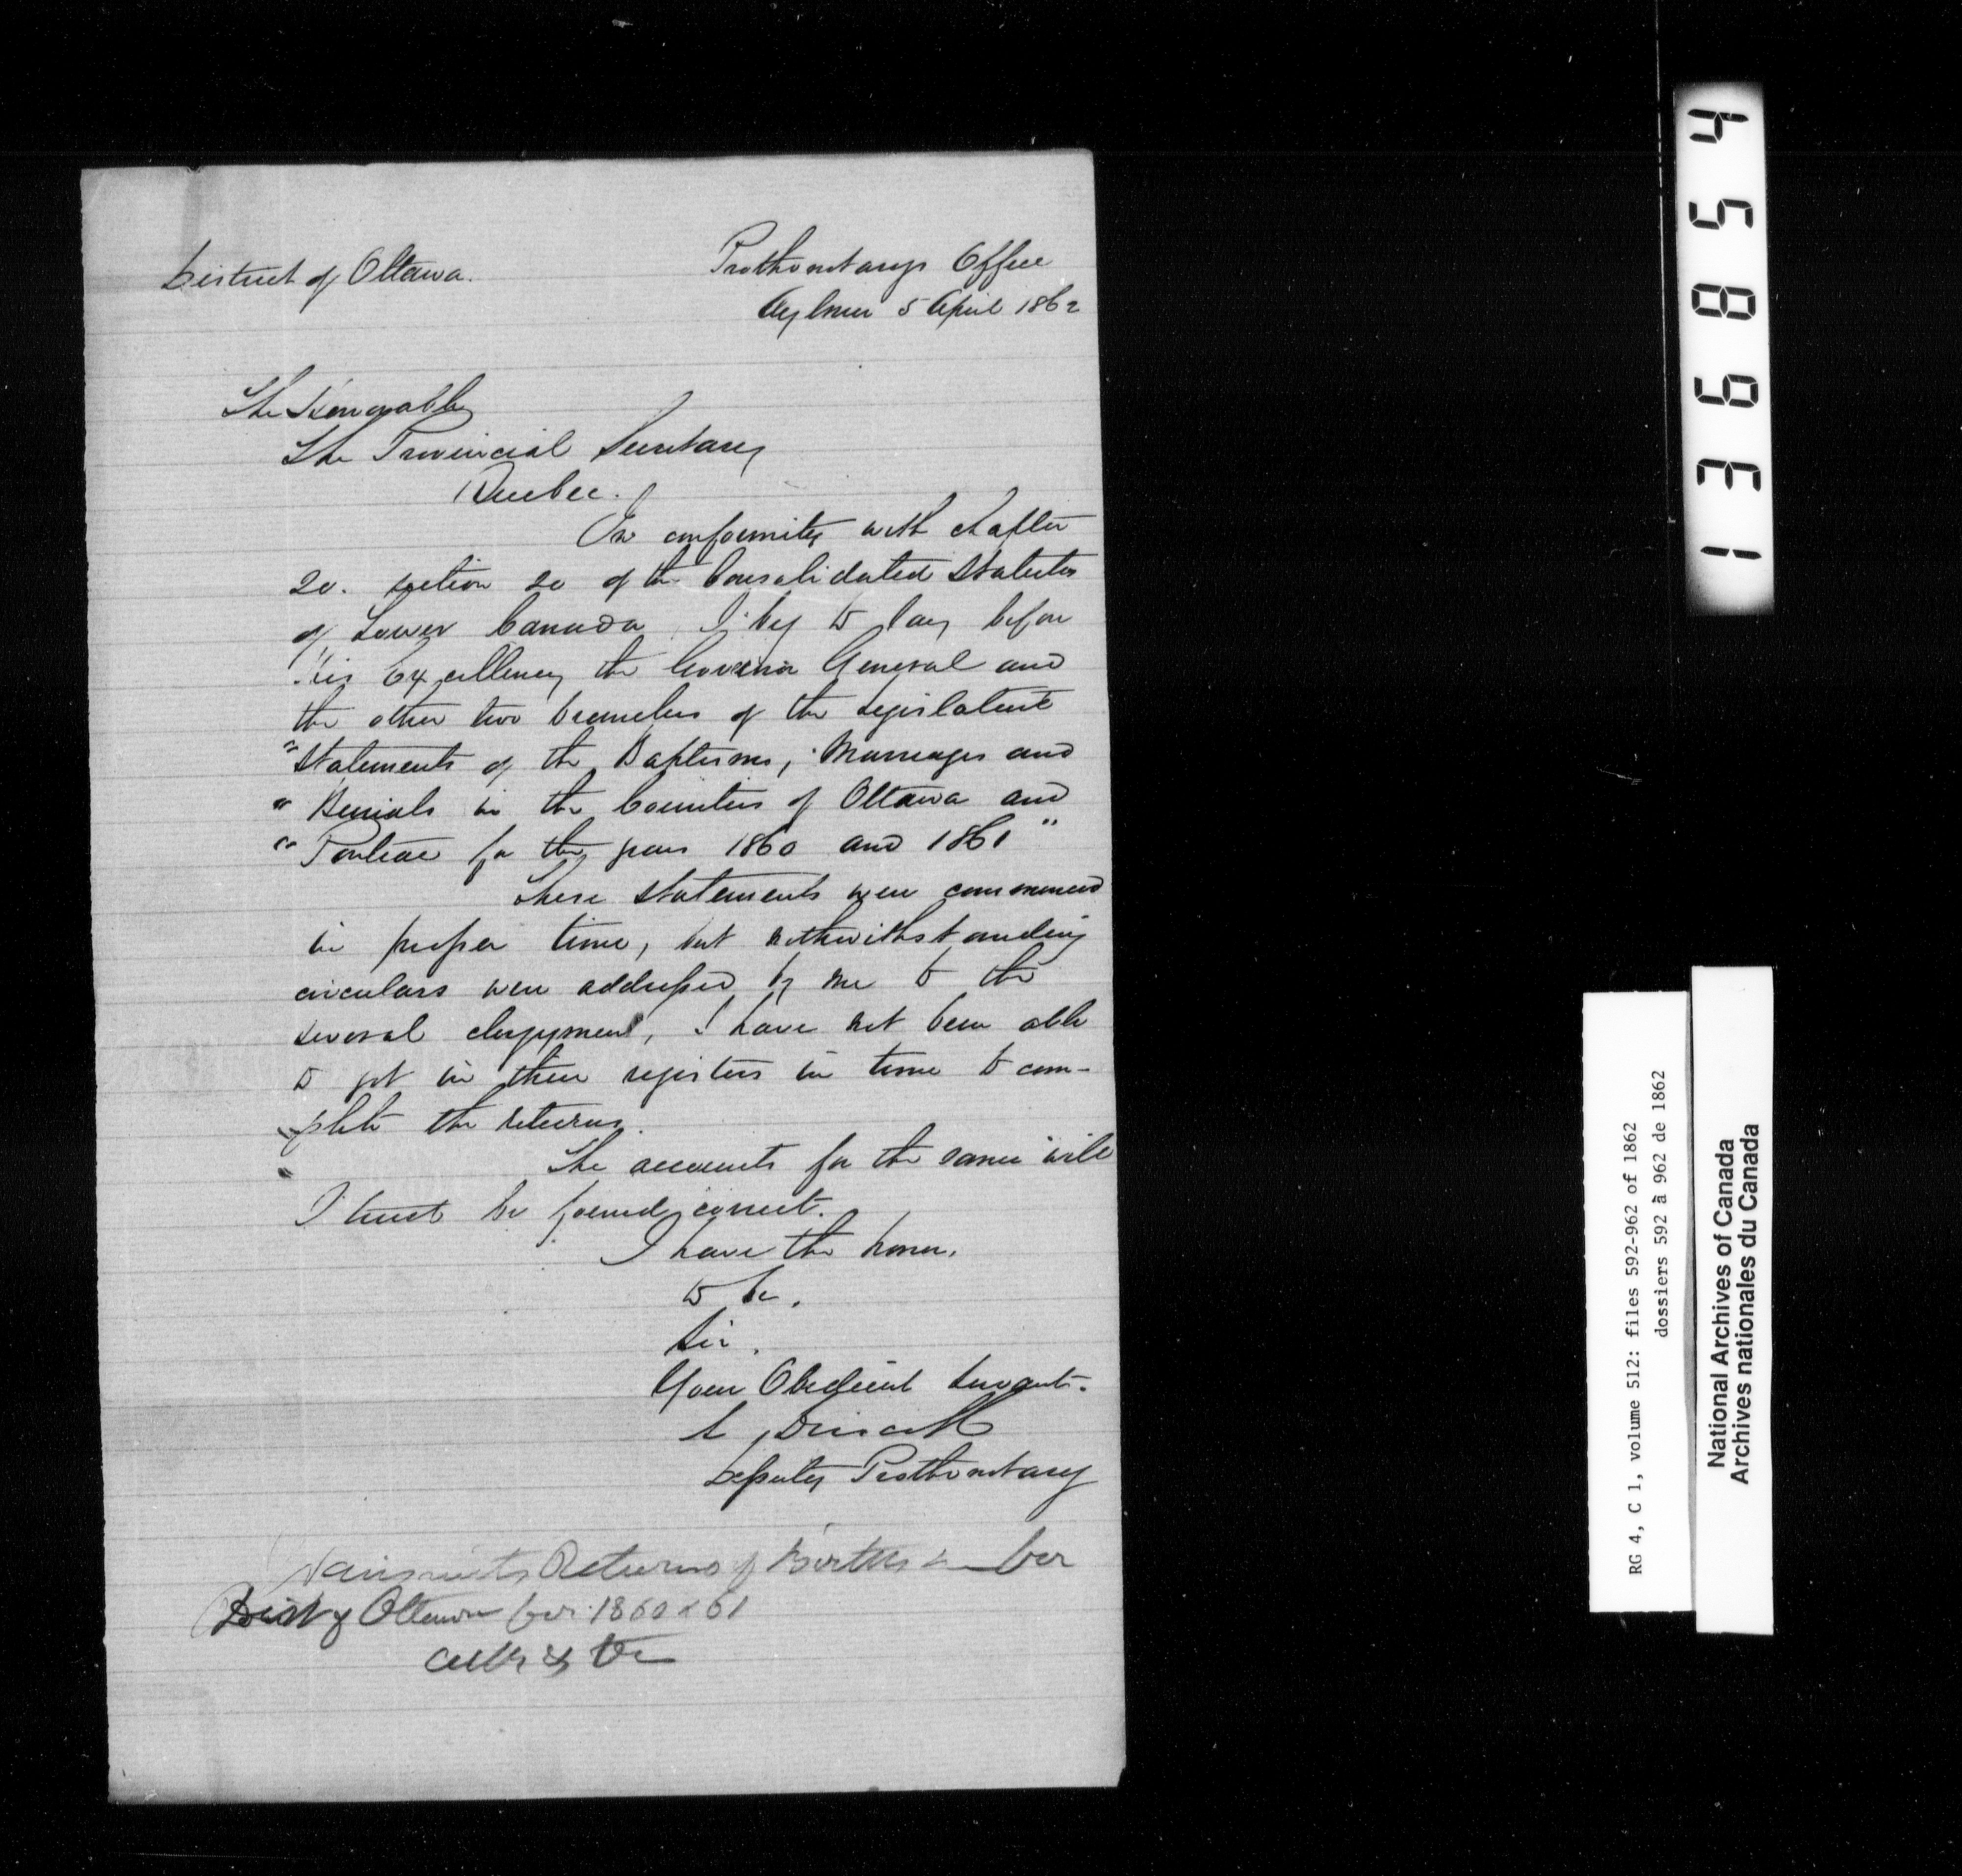 District of Ottawa.
Prothonotarys Office
Aylmer 5 April 1862
The Honorable
The Provincial Secretary
Quebec.
In conformity with chapter
20. section 20 of the Consolidated Statutes
of Lower Canada I beg to lay before
His Excellency the Governor General and
the other two branches of the Legislature
"Statements of the Baptisms, Marriages and
" Burials in the Counties of Ottawa and
" Pontiac for the years 1860 and 1861"
These statements were commenced
in proper time, but notwithstanding
circulars were addressed by me to the
several clergymen, I have not been able
to get in their registers in time to com-
plete the returns.
The accounts for the same will
I trust be found correct.
I have the honor.
to be.
Sir.
Your Obedient Servant.
Driscoll
Deputy Prothonotary
Transmits Returns of Births &c for
Dist of Ottawa for 1860 & 61
136854
RG 4, C 1, volume 512: files 592-962 of 1862
dossiers 592 à 962 de 1862
National Archives of Canada
Archives nationales du Canada